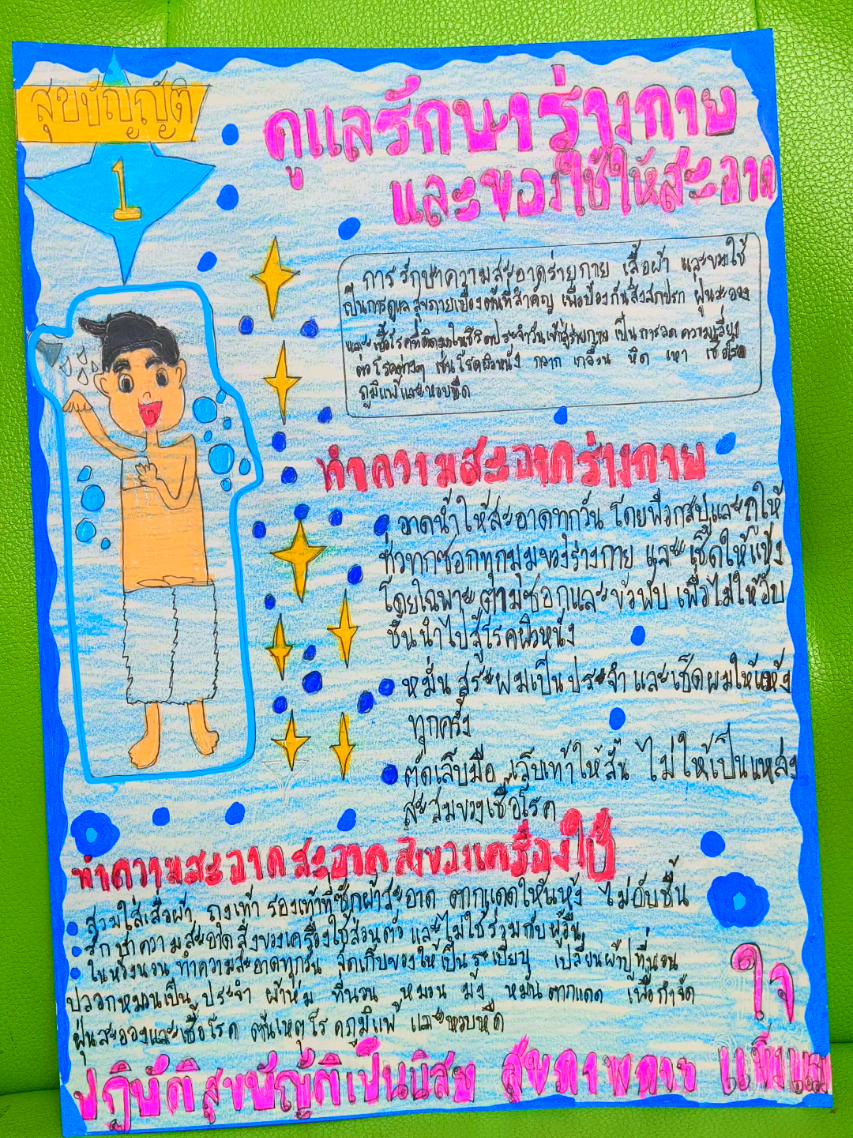 สุขบัญญัติ
1
ดูแลรักษาร่างกาย
และของใช้ให้สะอาด
การรักษาความสะอาดร่างกาย เสื้อผ้า และของใช้
เป็นการดูแลสุขกายเบื้องต้นที่สำคัญ เพื่อป้องกันสิ่งสกปรก ฝุ่นละออง
และเชื้อโรคที่ติดมาในชีวิตประจำวันเข้าสู่ร่างกาย เป็นการลดความเสี่ยง
ต่อโรคต่างๆ เช่นโรคผิวหนัง กลาก เกลื้อน หิด เหา เชื้อโรค
ภูมิแพ้และหอบหืด
ทำความสะอาดร่างกาย
อาบน้ำให้สะอาดทุกวัน โดยฟอกสบู่และถูให้
ทั่วทุกซอกทุกมุมของร่างกาย และเช็ดให้แห้ง
โดยเฉพาะตามซอกและข้อพับ เพื่อไม่ให้อับ
ชื้นนำไปสู่โรคผิวหนัง
หมั่นสระผมเป็นประจำ และเช็ดผมให้แห้ง
ทุกครั้ง
ตัดเล็บมือ เล็บเท้าให้สั้น ไม่ให้เป็นแหล่ง
สะสมของเชื้อโรค
ทำความสะอาดสะอาดสิ่งของเครื่องใช้
สวมใส่เสื้อผ้า ถุงเท้า รองเท้าที่ซักผ้าสะอาด ตากแดดให้แห้ง ไม่อับชื้น
รักษาความสะอาดสิ่งของเครื่องใช้ส่วนตัว และไม่ใช้ร่วมกับผู้อื่น
ในห้องนอน ทำความสะอาดทุกวัน จัดเก็บของให้เป็นระเบียบ เปลี่ยนผ้าปูที่นอน
ปลอกหมอนเป็นประจำ ผ้าห่ม ที่นอน หมอน มุ้ง หมั่นตากแดด เพื่อกำจัด
ฝุ่นละอองและเชื้อโรค ต้นเหตุโรคภูมิแพ้ และหอบหืด
ใจ
ปฏิบัติสุขบัญญัติเป็นนิสัย สุขภาพกาย แข็งแรง